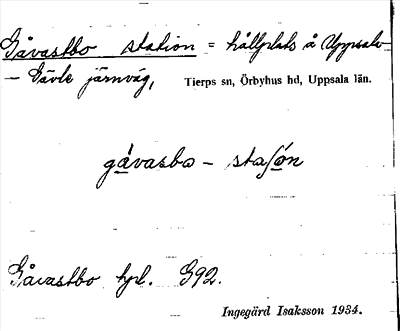 Gåvastbo station = hållplats å Uppsala
– Gävle järnväg, Tierps sn, Örbyhus hd, Uppsala län.
gåvasbo – staʃón
Gåvastbo hpl. G92.
Ingegärd Isaksson 1934.